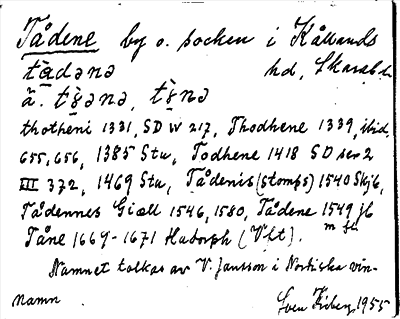 Tådene by o. socken i Kållands
tådənə hd, Skarab. l.
ä. tɣ̀ənə, tɣ̀nə
thotheni 1331, SD IV 217, Thodhene 1339, ibid.
655, 656, 1385 Stu, Todhene 1418 SD ser 2
III 372, 1469 Stu, Tådenis (stomps) 1540 Skjb,
Tådennes Giæll 1546, 1580, Tådene 1549 jb
Tåne 1669-1671 Hadorph (Vft). m fl
Namnet tolkas av V. Jansson i Nordiska vin-
namn Sven Kiberg, 1955